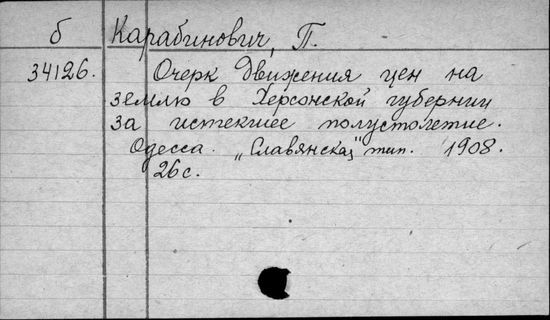 б Карабинович, П.
34126. Очерк движения цен на
землю в Херсонской губернии
за истекшее полустолетие.
Одесса. „Славянская" тип. 1908.
26 с.